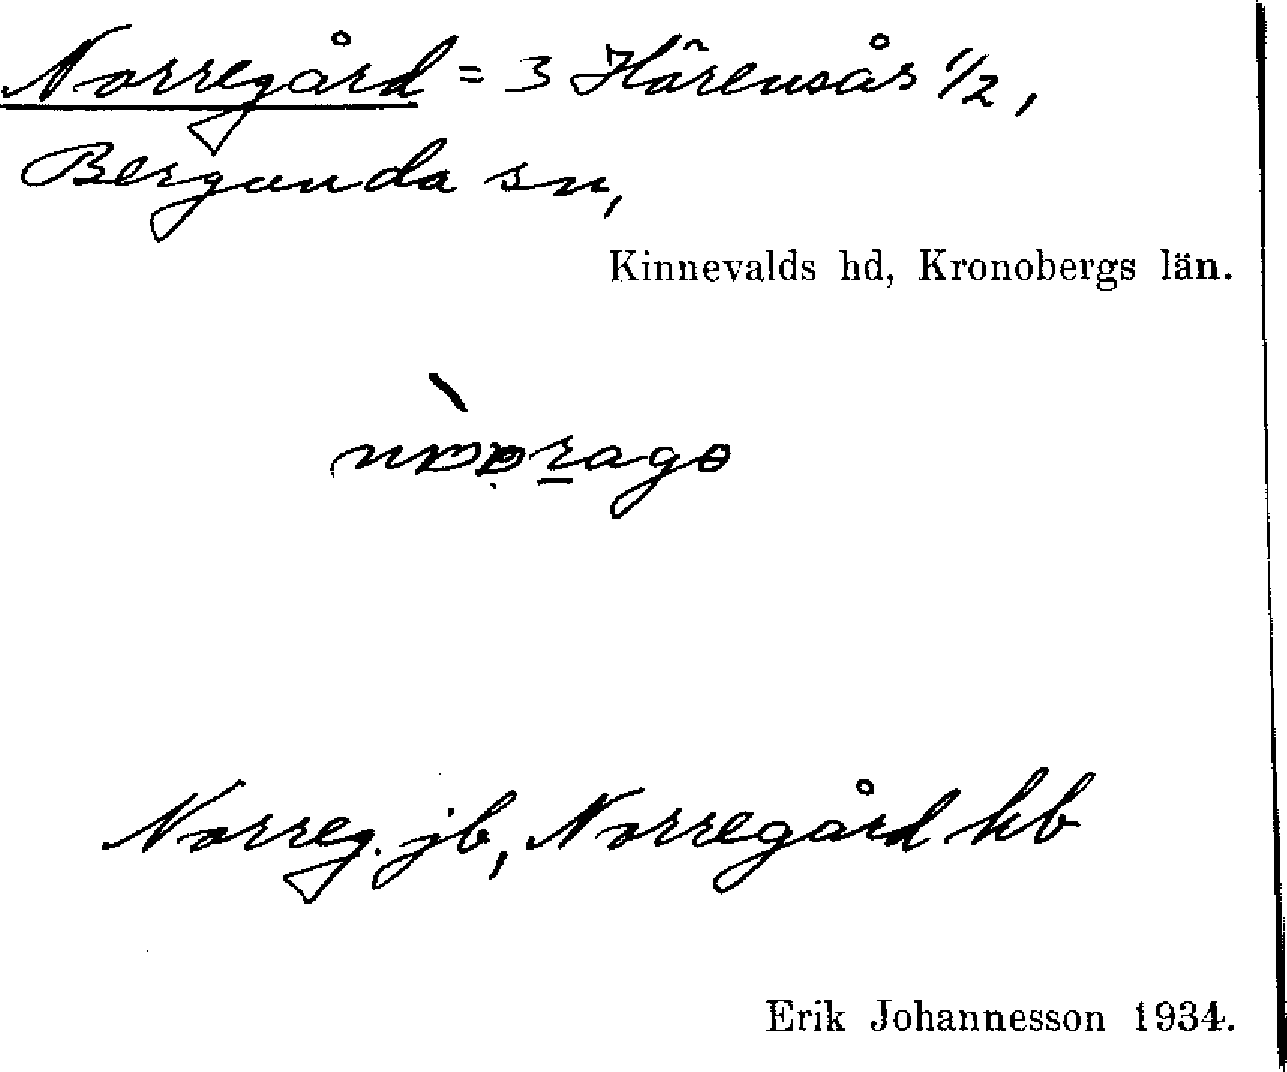 Norregård = 3 Hårensås 1/2,
Bergunda sn,
Kinnevalds hd, Kronobergs län.
Norreg. jb, Norregård kb
Erik Johannesson 1934.